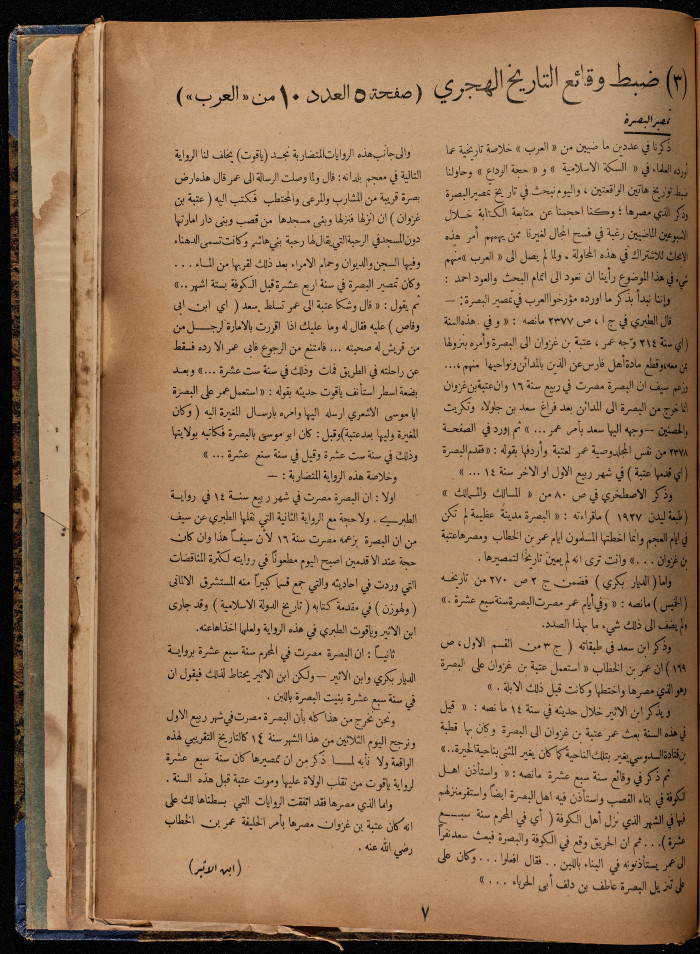 (٣) ضبط وقائع التاريخ الهجري (صفحة ٥ العدد ١٠ من «العرب»)
تمصير البصرة
ذكرنا في عددين ماضيين من « العرب » خلاصة تاريخية عما
أورده العلماء في « السكة الاسلامية » و « حجة الوداع » وحاولنا
ضبط تواريخ هاتين الواقعتين ، واليوم نبحث في تاريخ تمصير البصرة
وذكر الذي مصرها ؛ وكنا احجمنا عن متابعة الكتابة خلال
الاسبوعين الماضيين رغبة في فسح المجال لغيرنا ممن يهمهم أمر هذه
الابحاث للاشتراك في هذه المحاولة . ولما لم يصل الى « العرب » منهم
شيء في هذا الموضوع رأينا ان نعود الى اتمام البحث والعود احمد :
وإننا نبدأ بذكر ما اورده مؤرخو العرب في تمصير البصرة : ــ
قال الطبري في ج ١ ، ص ٢٣٧٧ مانصه : « و في هذه السنة
( اي سنة ١٤) وجه عمر ، عتبة بن غزوان الى البصرة وأمره بنزولها
بمن معه، وقطع مادة أهل فارس عن الذين بالمدائن ونواحيها منهم ،...
وزعم سيف ان البصرة مصرت في ربيع سنة ١٦ وان عتبة بن غزوان
انما خرج من البصرة الى المدائن بعد فراغ سعد بن جلولاء وتكريت
والحصنين ــ وجهه اليها سعد بأمر عمر ... » ثم ورد في الصفحة
٢٣٧٨ من نفس المجلد وصية عمر لعتبة وأردفها بقوله : «فقدم البصرة
( اي قدمها عتبة ) في شهر ربيع الاول او الاخر سنة ١٤ ... »
وذكر الاصطخري في ص ٨٠ من « المسالك والممالك »
( طبعة ليدن ١٩٢٧ ) ماقراءته : « البصرة مدينة عظيمة لم تكن
في ايام العجم وانما اختطها المسلمون ايام عمر بن الخطاب ومصرها عتبة
بن غزوان ...» وانت ترى انه لم يعين تاريخاً لتمصيرها .
واما ( الديار بكري ) فضمن ج ٢ ص ٢٧٠ من تاريخه
( الخميس ) مانصه : « وفي أيام عمر مصرت البصرة سنة سبع عشرة .»
ولم يضف الى ذلك شيء ما بهذا الصدد.
وذكر ابن سعد في طبقاته ( ج ٣ من القسم الاول ، ص
١٦٩ ) ان عمر بن الخطاب « استعمل عتبة بن غزوان على البصرة
وهو الذي مصرها واختطها وكانت قبل ذلك الابلة . »
ويذكر ابن الاثير خلال حديثه في سنة ١٤ ما نصه : « قيل
في هذه السنة بعث عمر عتبة بن غزوان الى البصرة وكان بها قطبة
بن قتادة السدوسي يغير بتلك الناحية كما كان يغير المثنى بناحية الحيرة..»
ثم ذكر في وقائع سنة سبع عشرة مانصه : « واستأذن اهل
الكوفة في بناء القصب واستأذن فيه اهل البصرة ايضاً واستقر منزلهم
فيها في الشهر الذي نزل أهل الكوفة ( أي في المحرم سنة سبع
عشرة )... ثم ان الحريق وقع في الكوفة والبصرة فبعث سعد نفراً
الى عمر يستأذنونه في البناء باللبن .. فقال افعلوا ... وكان على
على تنزيل البصرة عاطف بن دلف أبى الحرباء ... »
والى جانب هذه الروايات المتضاربة نجد (ياقوت) يخلف لنا الرواية
التالية في معجم بلدانه : قال ولما وصلت الرسالة الى عمر قال هذه ارض
بصرة قريبة من المشارب والمرعى والمحتطب فكتب اليه ( عتبة بن
غزوان ) ان انزلها فنزلها وبنى مسجدها من قصب وبنى دار امارتها
دون المسجد في الرحبة التي يقال لها رحبة بني هاشم وكانت تسمى الدهناء
وفيها السجن والديوان وحمام الامراء بعد ذلك لقربها من الماء ...
وكان تمصير البصرة في سنة اربع عشرة قبل الكوفة بستة اشهر ..»
ثم يقول : « قال وشكا عتبة الى عمر تسلط سعد ( اي ابن ابى
وقاص ) عليه فقال له وما عليك اذا اقررت بالامارة لرجل من
من قريش له صحبته ... فامتنع من الرجوع فابى عمر الا رده فسقط
عن راحلته في الطريق فمات وذلك في سنة ست عشرة ...» وبعد
بضعة اسطر استأنف ياقوت حديثه بقوله : « استعمل عمر على البصرة
ابا موسى الاشعري ارسله اليها وامره بارسال المغيرة اليه ( وكان
المغيرة وليها بعد عتبة) وقيل : كان ابو موسى بالبصرة فكاتبه بولايتها
وذلك في سنة ست عشرة وقيل في سنة سبع عشرة ... »
وخلاصة هذه الرواية المتضاربة : ــ
اولا : ان البصرة مصرت في شهر ربيع سنة ١٤ في رواية
الطبري . ولا حجة مع الرواية الثانية التي نقلها الطبري عن سيف
من ان البصرة بزعمه مصرت سنة ١٦ لأن سيفاً هذا وان كان
حجة عند الاقدمين اصبح اليوم مطعوناً في روايته لكثرة المناقضات
التي وردت في احاديثه والتي جمع قسما كبيراً منه المستشرق الالماني
( ولهوزن ) في مقدمة كتابه ( تاريخ الدولة الاسلامية ) وقد جارى
ابن الاثير وياقوت الطبري في هذه الرواية ولعلهما اخذاها عنه.
ثانياً : ان البصرة مصرت في المحرم سنة سبع عشرة برواية
الديار بكري وابن الاثير ــ ولكن ابن الاثير يحتاط لذلك فيقول ان
في سنة سبع عشرة بنيت البصرة باللبن .
ونحن نخرج من هذا كله بأن البصرة مصرت في شهر ربيع الاول
ونرجح اليوم الثلاثين من هذا الشهر سنة ١٤ كالتاريخ التقريبي لهذه
الواقعة ولا نأبه لما ذكر من ان تمصيرها كان سنة سبع عشرة
لرواية ياقوت من تقلب الولاة عليها وموت عتبة قبل هذه السنة .
واما الذي مصرها فقد اتفقت الروايات التي بسطناها لك على
انه كان عتبة بن غزوان مصرها بأمر الخليفة عمر بن الخطاب
رضي الله عنه .
( ابن الاثير )
٧